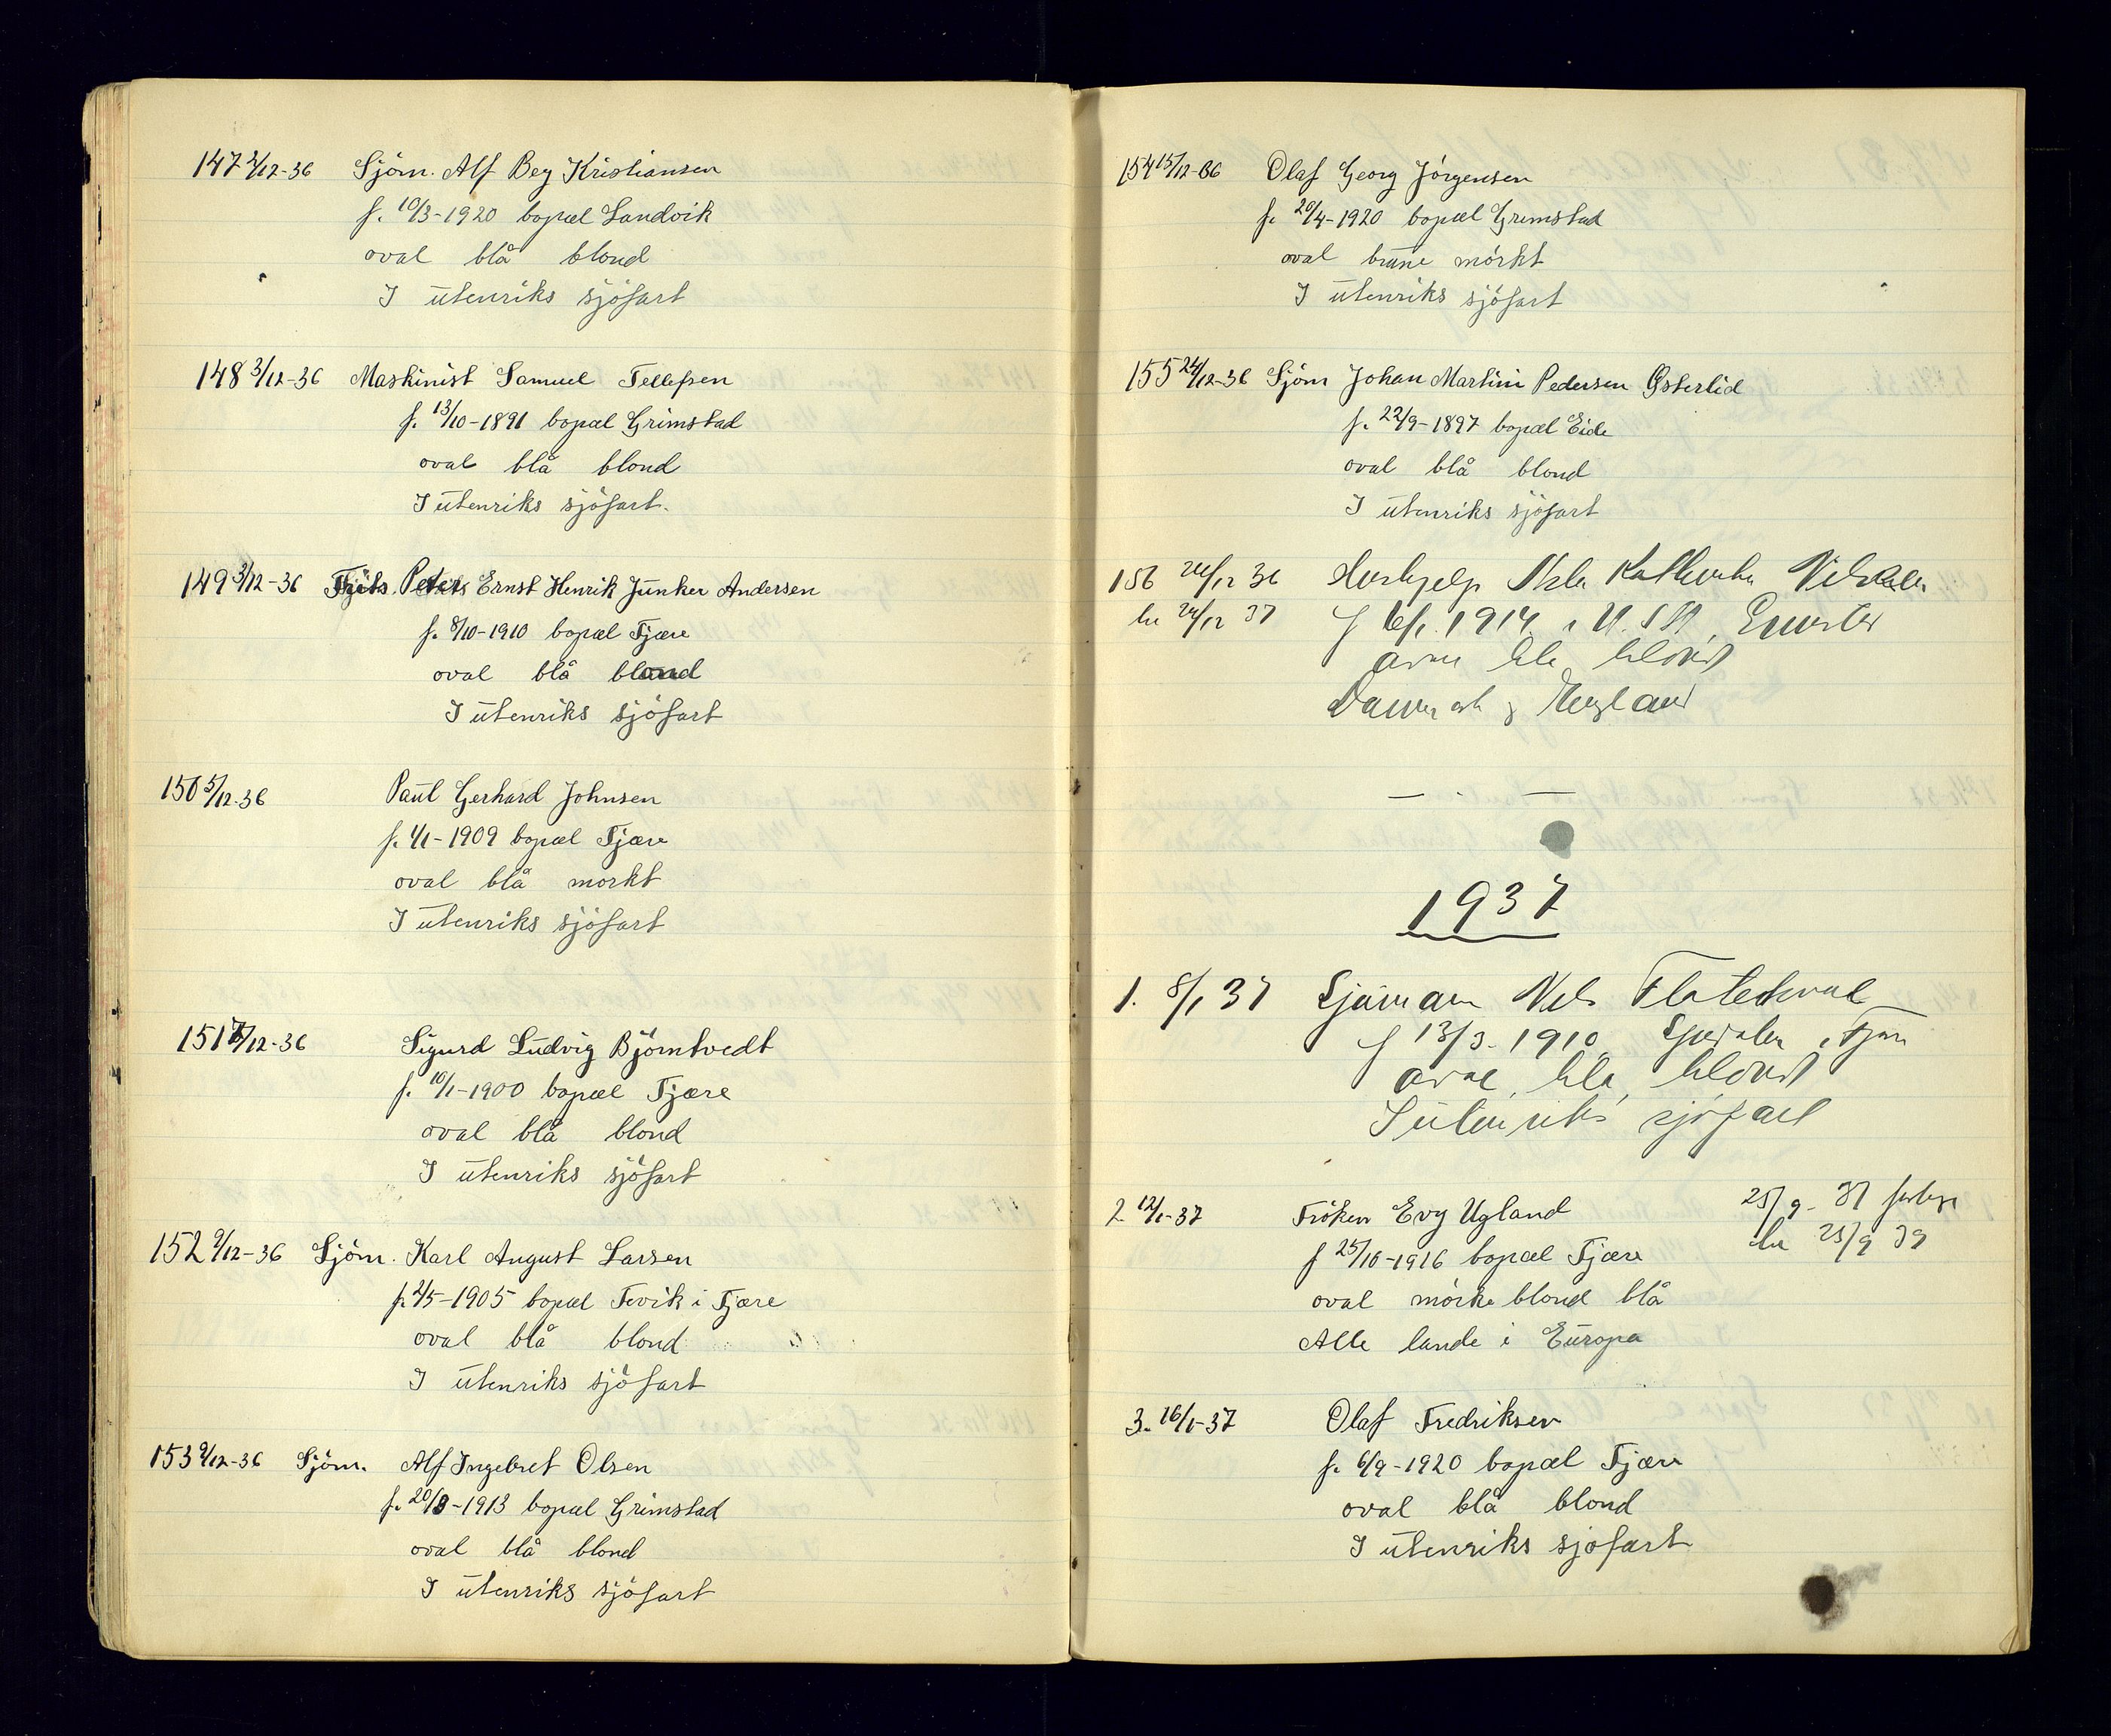 147 2/12-36 Sjöm. Alf Bey Kristiansen
f. 10/3-1920 bopæl Landvik
oval blå blond
I utenriks sjöfart
148 3/12-36 Maskinist Samuel Tellefsen
f. 13/10-1891 bopæl Grimstad
oval blå blond
I utenriks sjöfart.
149 3/12-36 Ernst Henrik Junker Andersen
f. 8/10-1910 bopæl Fjære
oval blå blond
I utenriks sjöfart
150 5/12-36 Paul Gerhard Johnsen
f. 1/1-1909 bopæl Fjære
oval blå morkt
I utenriks sjöfart
151 7/12-36 Sigurd Ludvig Björntvedt
f. 10/1-1900 bopæl Fjære
oval blå blond
I utenriks sjöfart
152 9/12-36 Sjöm. Karl August Larsen
f. 2/5-1905 bopæl Fevik i Fjære
oval blå blond
I utenriks sjöfart
153 9/12-36 Sjöm. Alf Ingebret Olsen
f. 20/8-1913 bopæl Grimstad
oval blå blond
I utenriks sjöfart
154 15/12-36 Olaf Georg Jörgensen
f. 20/4-1920 bopæl Grimstad
oval brune mörkt
I utenriks sjöfart
155 24/12-36 Sjöm Johan Martin Pedersen Österlid
f. 22/9-1897 bopæl Eide
oval blå blond
I utenriks sjöfart
156 24/12 36 Hushjelp
24/12 37 f 1914 i U.S.A.
blå blond
Danmark og England
1937
1. 8/1 37 Sjömann Nils
f 13/3-1910 Fjære
oval, blå, blond
I utenriks sjöfart
2. 12/1-37 Fröken Evy Ugland 25/9-37
f 25/10-1916 bopæl Fjære 25/9 39
oval mörke blond blå
Alle lande i Europa
3. 16/1-37 Olaf Fredriksen
f. 6/9-1920 bopæl Fjære
oval blå blond
I utenriks sjöfart